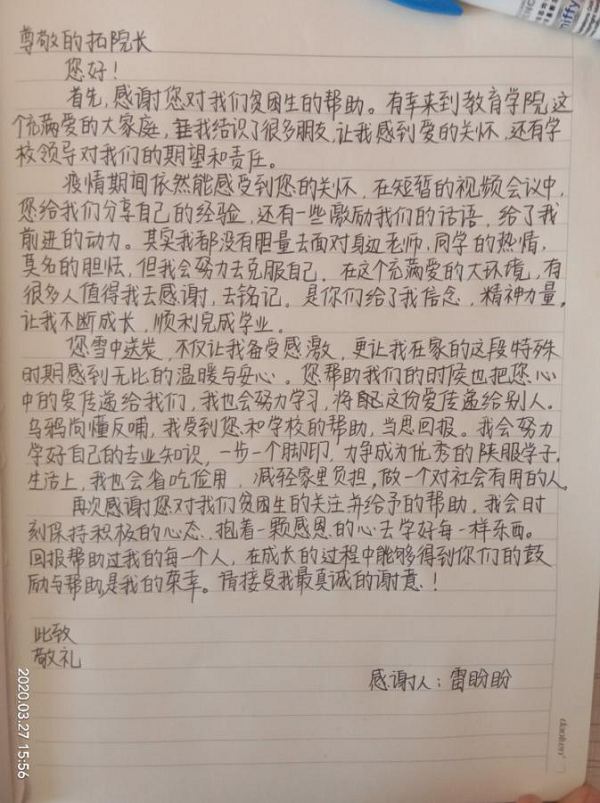 尊敬的拓院长
您好！
首先，感谢您对我们贫困生的帮助。有幸来到教育学院这
个充满爱的大家庭，我结识了很多朋友，让我感到爱的关怀，还有学
校领导对我们的期望和责任。
疫情期间依然能感受到您的关怀，在短暂的视频会议中，
您给我们分享自己的经验，还有一些激励我们的话语，给了我
前进的动力。其实我都没有胆量去面对身边老师、同学的热情，
莫名的胆怯，但我会努力去克服自己。在这个充满爱的大环境，有
很多人值得我去感谢，去铭记。是你们给了我信念，精神力量，
让我不断成长，顺利完成学业。
您雪中送炭，不仅让我备受感激，更让我在家的这段特殊
时期感到无比的温暖与安心。您帮助我们的时候也把您心
中的爱传递给我们，我也会努力学习，将这份爱传递给别人。
乌鸦尚懂反哺，我受到您和学校的帮助，当思回报。我会努力
学好自己的专业知识，一步一个脚印，力争成为优秀的陕服学子，
生活上，我也会省吃俭用，减轻家里负担，做一个对社会有用的人。
再次感谢您对我们贫困生的关注并给予的帮助，我会时
刻保持积极的心态，抱着一颗感恩的心去学好每一样东西。
回报帮助过我的每一个人，在成长的过程中能够得到你们的鼓
励与帮助是我的荣幸。请接受我最真诚的谢意！
此致
敬礼
感谢人：雷盼盼
2020.03.27 15:56